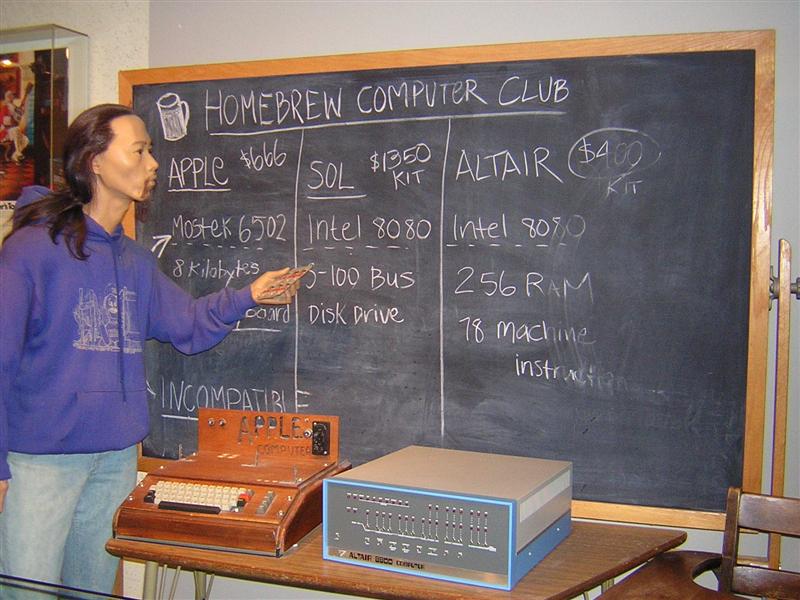 HOMEBREW COMPUTER CLUB
APPLE $666
Mostek 6502
8 Kilobytes
board
INCOMPATIBLE
SOL $1350
KIT
Intel 8080
S-100 Bus
Disk Drive
ALTAIR $400
KIT
Intel 8080
256 RAM
78 machine
instruction
APPLE
COMPUTER
ALTAIR 8800 COMPUTER